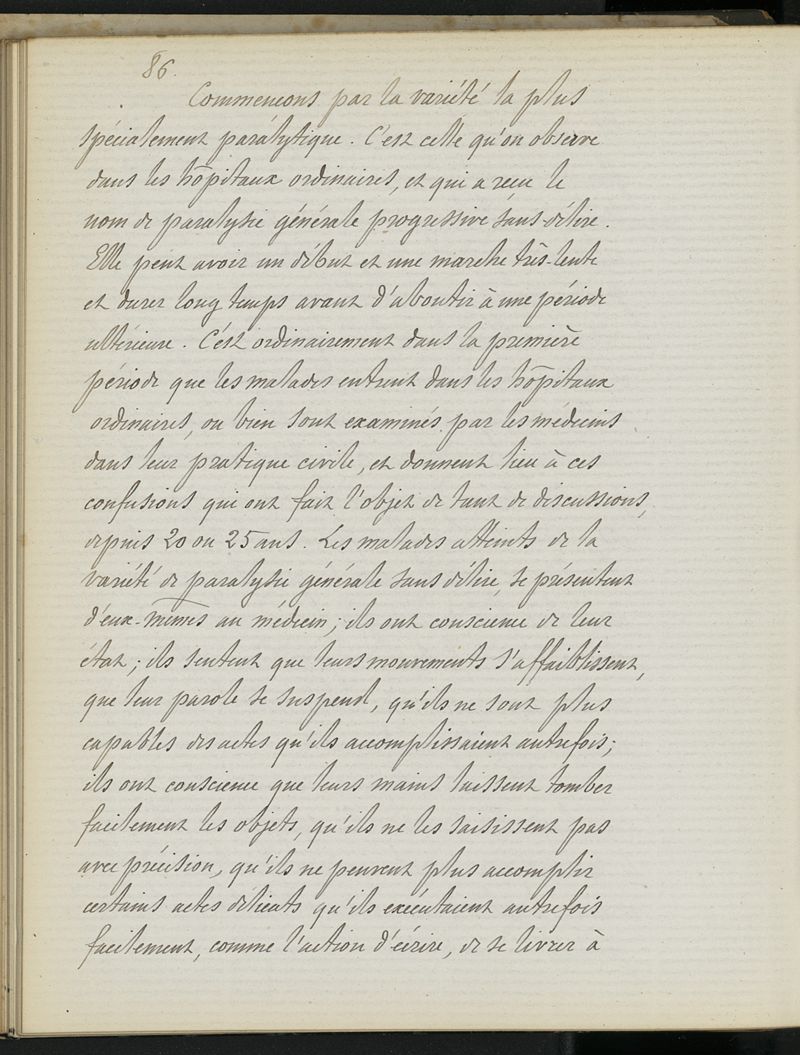 86.
Commencons par la variété la plus
spécialement paralytique. C'est celle qu'on observe
dans les hôpitaux ordinaires, et qui a recu le
nom de paralysie générale progressive sans-délire.
Elle peut avoir un début et une marche très-lente
et durer long temps avant d'aboutir à une période
ultérieure. C'est ordinairement dans la première
période que les malades entrent dans les hôpitaux
ordinaires, ou bien sont examinés par les médecins
dans leur pratique civile, et donnent lieu à ces
confusions qui ont fait l'objet de tant de discussions,
depuis 20 ou 25 ans. Les malades atteints de la
variété de paralysie générale sans délire, se présentent
d'eux-mêmes au médecin; ils ont conscience de leur
état; ils sentent que leurs mouvements s'affaiblissent,
que leur parole se suspend, qu'ils ne sont plus
capables des actes qu'ils accomplissaient autrefois;
ils ont conscience que leurs mains laissent tomber
facilement les objets, qu'ils ne les saisissent pas
avec précision, qu'ils ne peuvent plus accomplir
certains actes délicats qu'ils exécutaient autrefois
facilement, comme l'action d'écrire, de se livrer à